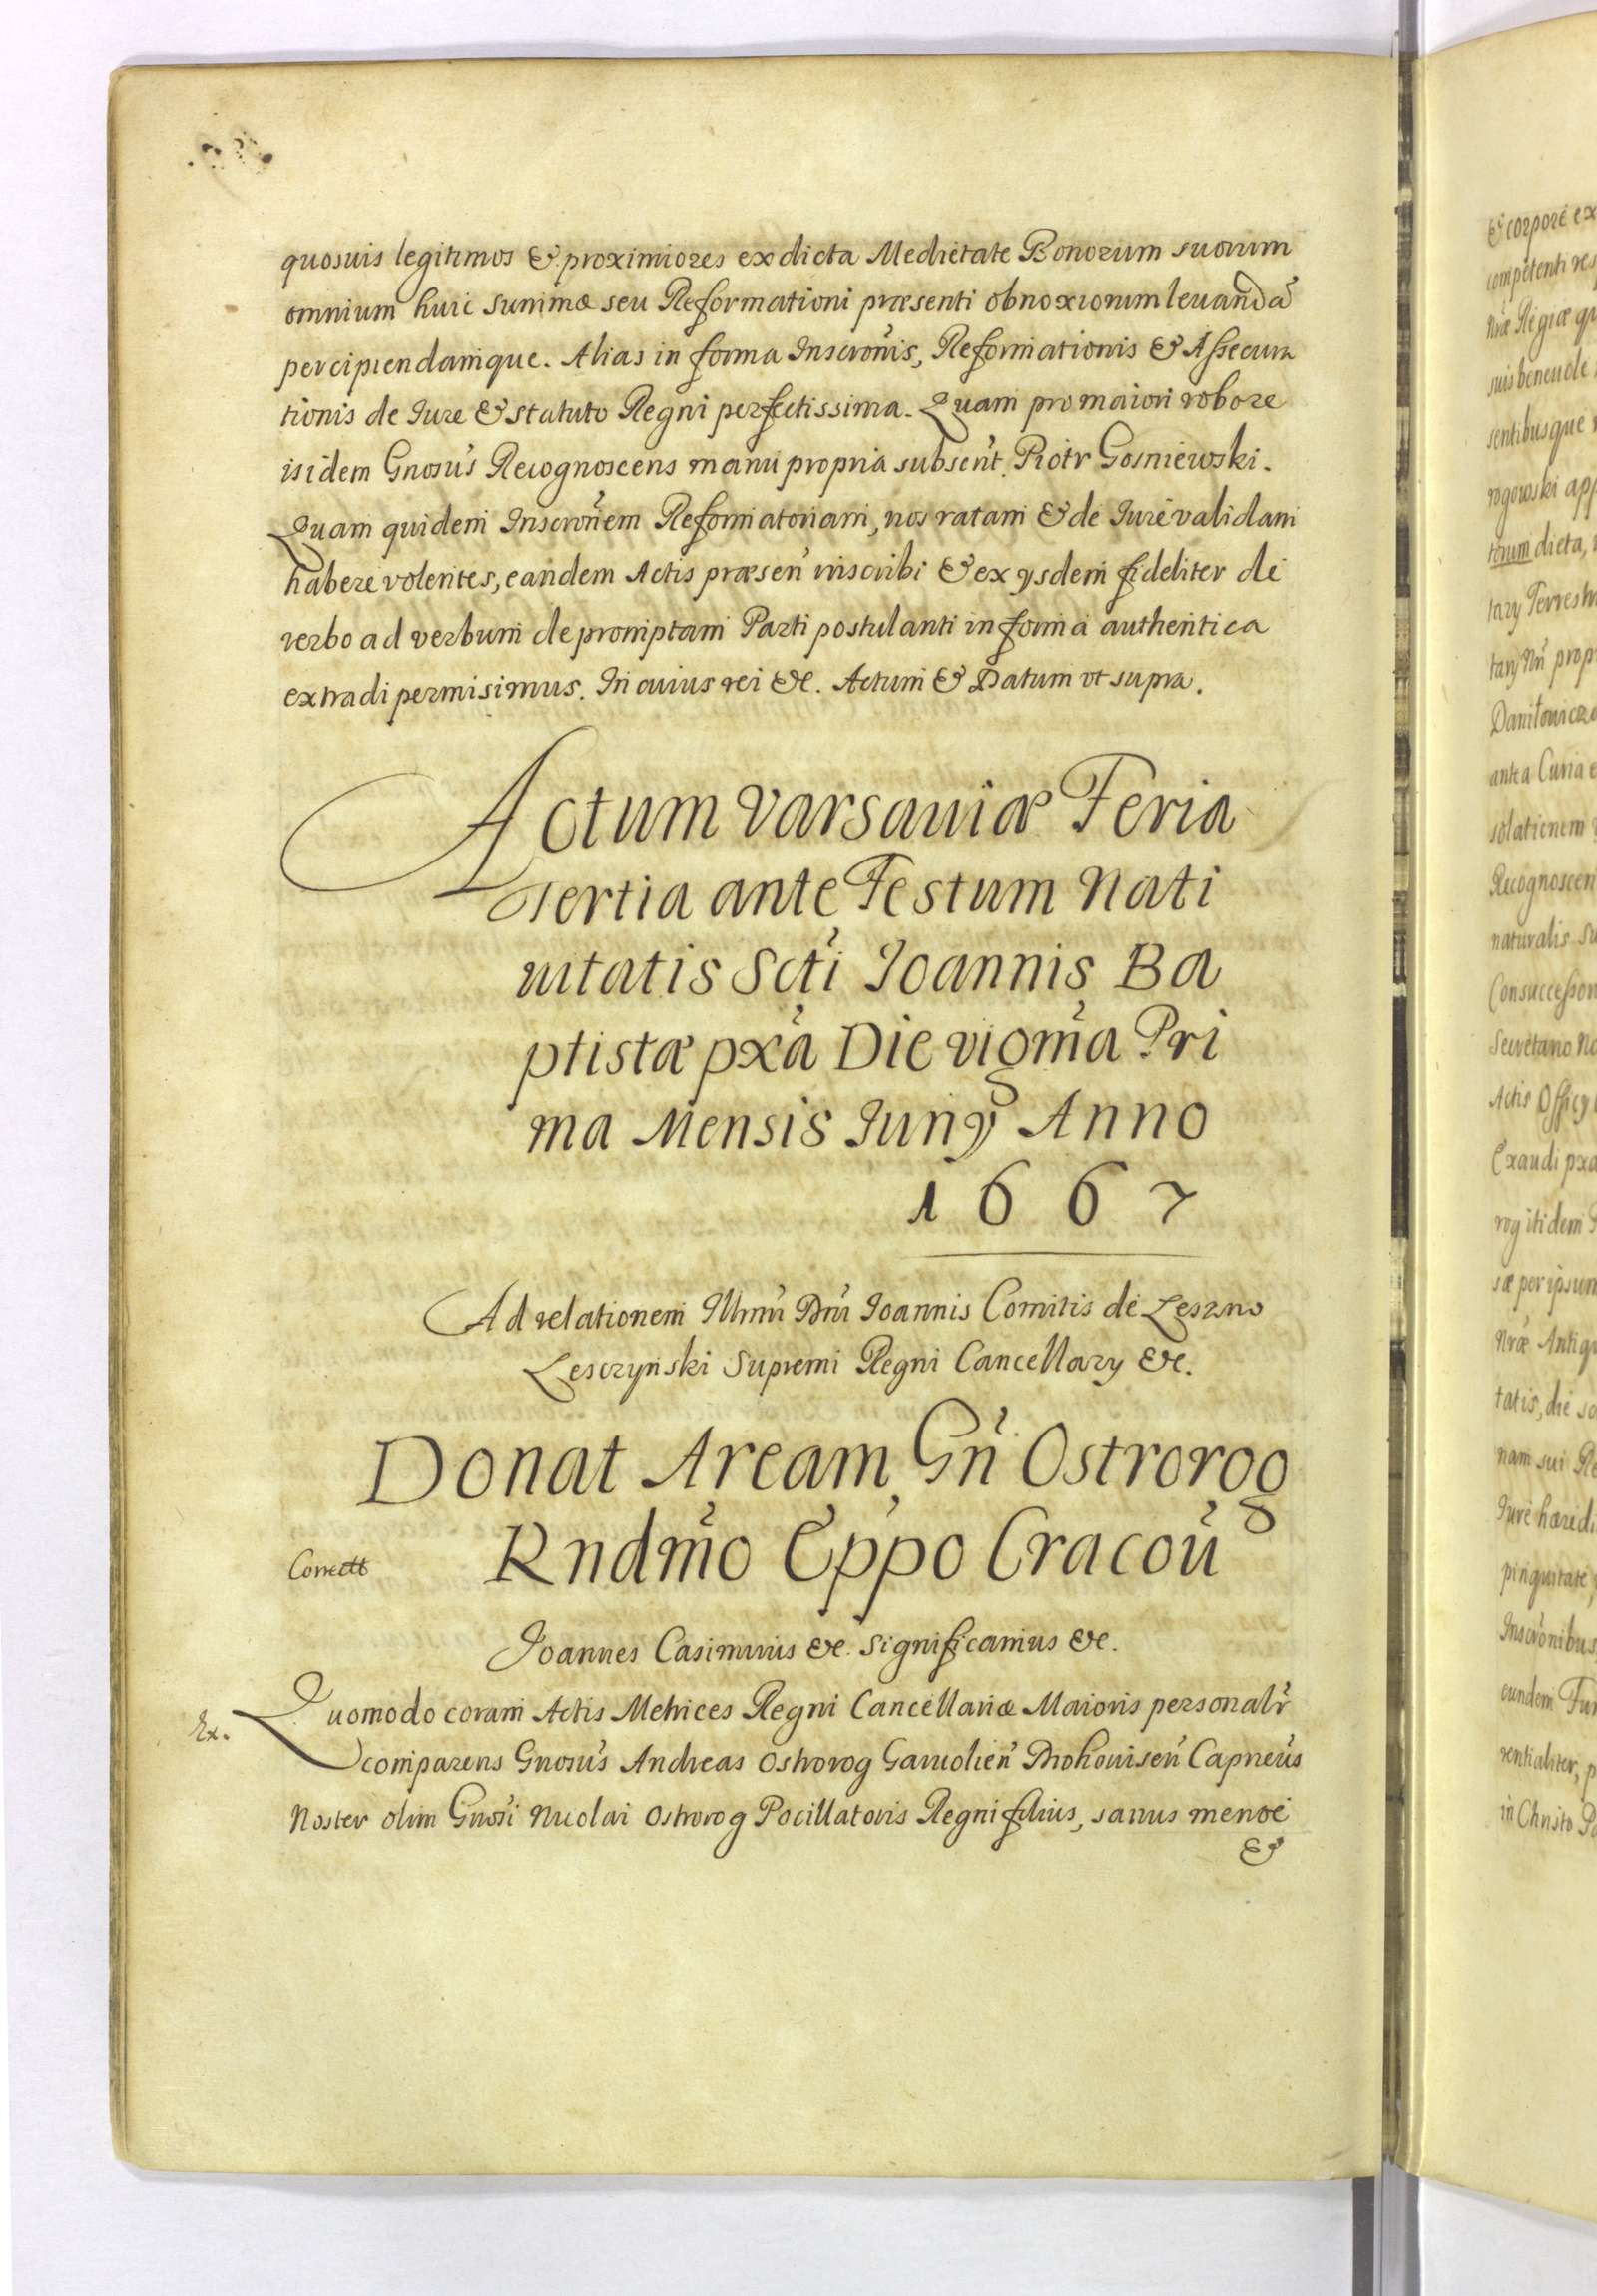 quosuis legitimos & proximiores ex dicta Medietate Bonorum suorum
omnium huic summæ seu Reformationi præsenti obnoxiorum leuandã
percipiendamque. Alias in forma Inscrõnis, Reformationis & Assecura
tionis de Iure & statuto Regni perfectissima. Quam pro maiori robore
isidem Gnosus Recognoscens manu propria subscrit. Piotr Gosniewski.
Quam quidem Inscrõnem Reformatoriam, nos ratam & de Iure validam
habere volentes, eandem Actis præsen inscribi & ex ysdem fideliter de
verbo ad verbum depromptam Parti postulanti in forma authentica
extradi permisimus. In cuius rei &c. Actum & Datum vt supra.
Actum Varsauiæ Feria
Tertia ante Festum Nati
uitatis Scti Ioannis Ba
ptistæ pxa Die vigma Pri
ma Mensis Iuny Anno
1667
Ad relationem Illmi Dni Ioannis Comitis de Leszno
Lesczyński Supremi Regni Cancellary &c.
Donat Aream Gn Ostrorog
Rndmo Eppo Cracou
Correctt
Ioannes Casimirus &c. Significamus &c.
Ex.
Quomodo coram Actis Metrices Regni Cancellariæ Maioris personalr
comparens Gnosus Andreas Ostrorog Garuolien Drohouisen Capneus
Noster olim Gnosi Nicolai Ostrorog Pocillatoris Regni filius, sanus mente
&
& corpore ex
competenti res
Nræ Regiæ qu
suis bene de
sentibusque
rogowski app
torum dicta,
tary Terrestr
tary Nri propr
Daniłowicz
antea Curia e
solationem
Recognoscen
naturalis su
Consuccesson
Secretario No
Actis Officy
Exaudi pxa
rog itidem
sæ per ipsum
Nræ Antiqu
tatis, die so
nam sui Re
Iure hæredi
pinguitate,
Inscronibus
eundem Fun
rentialiter, p
in Christo Pa